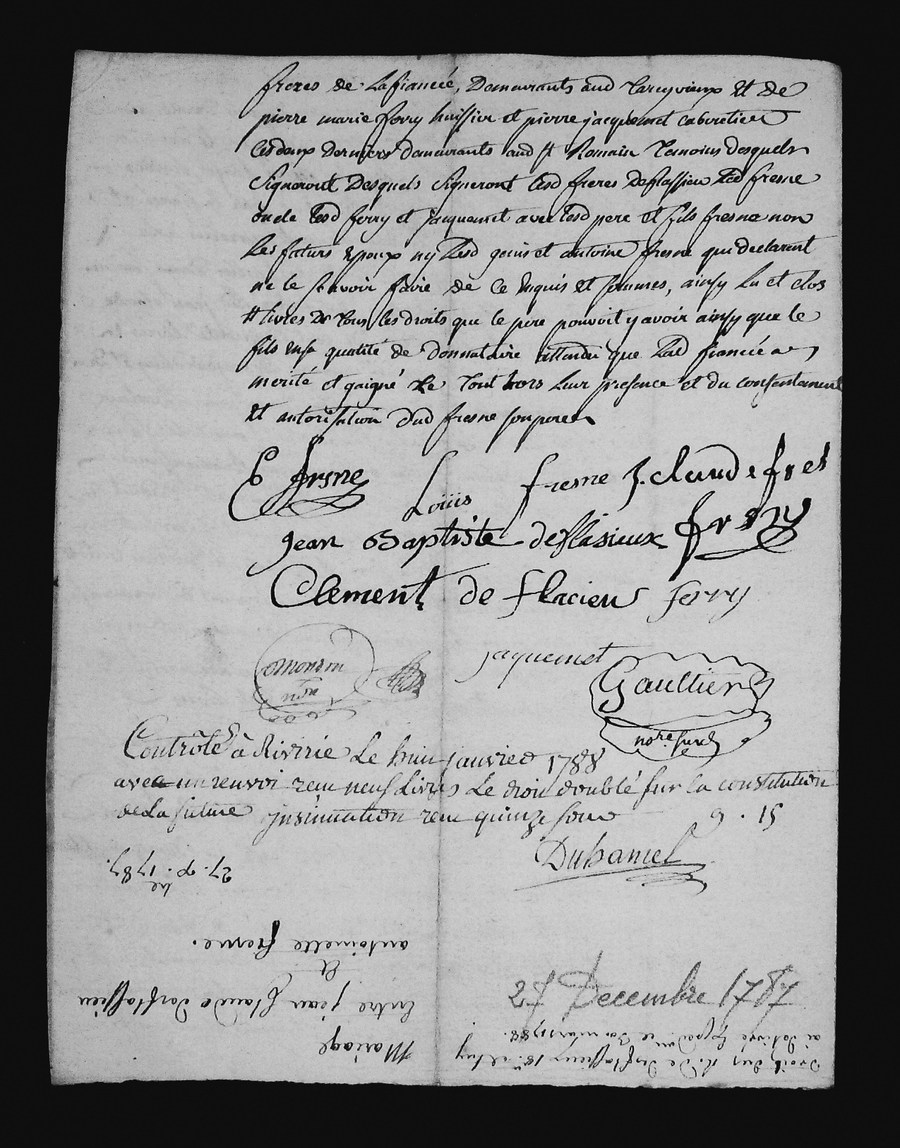 freres de La fiancée, Demeurants aud Larcquieux Et de
pierre marie ferry huissier et pierre jacquemet cabaretier
Ces deux derniers demeurants aud St Romain Temoins desquels
Signeront Desquels Signeront Lesd freres Deflassieu Led fresne
oncle Lesd ferry et jacquemet avec Lesd pere Et fils fresne non
Les futurs Epoux ny Lesd genis et antoine fresne qui declarent
ne le scavoir faire de ce Enquis et sommes, ainsy Lu et clos
# livres De Tous les droits que le pere pouvoit y avoir ainsy que le
fils Esd qualité de Donnataire attendu que Lad fiancée a
merité et gaigné Le Tout hors Leur presence et du consentement
Et autorisation Dud fresne son pere
E frsne Louis fresne J. claude fres
jean Baptiste deflasieux fresne
Clement de flacieu ferry
jaquemet
Monron
nre
Gaultier
nore
Contrôlé à Rivirie Le huit janvier 1788
avec un renvoi recu neuf Livres Le droit doublé sur la constitution
de La future insinuation recu quinze sous 9 . 15
Duhamel
27 Decembre 1787
Mariage
Entre jean Claude Deflassieu
Et
antoinette fresne.
27. Xbre 1787.